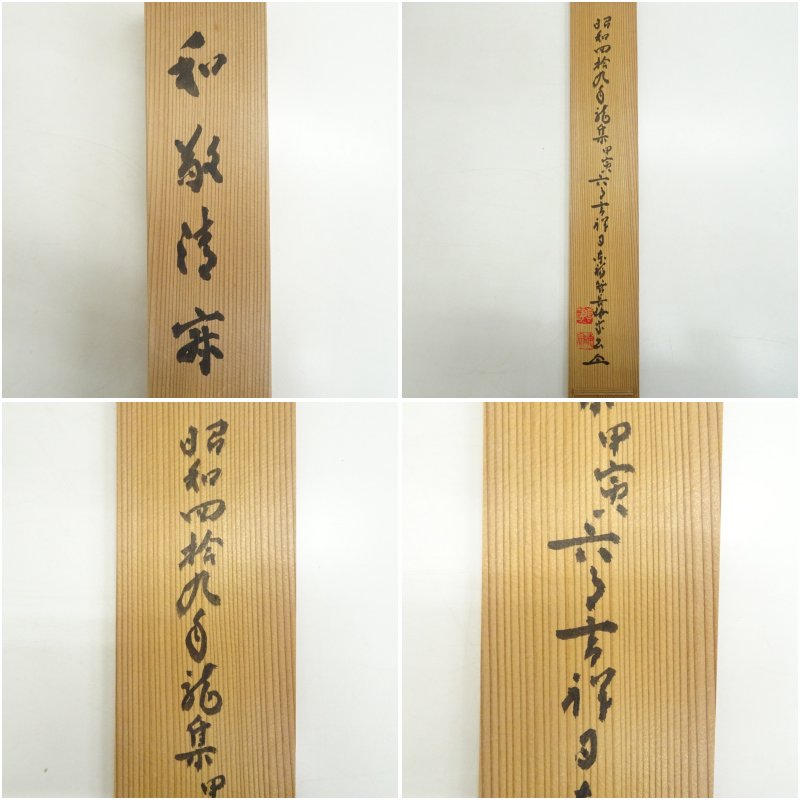 和敬清寂
昭和四拾九年龍集甲寅六月吉祥日
昭和四拾九年龍集甲
甲寅六月吉祥日